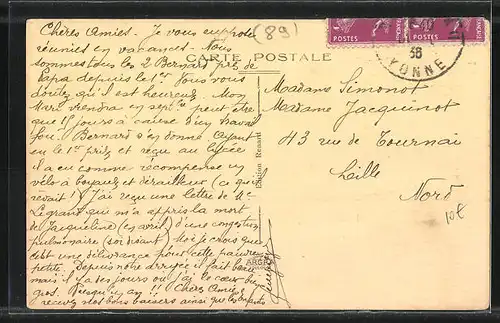 Chères Amies. Je vous suppose
réunies en vacances. Nous
sommes tous les 2 Bernard près de
Papa depuis le 1er. Vous vous
doutez qu'il est heureux. Mon
Mari viendra en septbre peut être
que 15 jours à cause d'un travail
fou. Bernard s'en donne. Ayant
eu le 1er prix et reçu au lycée
il a eu comme récompense un
vélo à boyaux et dérailleur (ce qu'il
rêvait !) J'ai reçu une lettre de Me
Legrain qui m'a appris la mort
de Jacqueline (en avril) d'une congestion
pulmonaire (soi disant). Moi je crois que
c'est une délivrance pour cette pauvre
petite. Depuis notre arrivée il fait beau
mais il y a des jours où j'ai le cœur bien
gros. Presqu'un an !! Chères Amies
recevez nos bons baisers ainsi que les enfants
(89)
CARTE POSTALE
POSTES
POSTES
38
YONNE
Edition Renant
ARGE
Madame Simonot
Madame Jacquinot
43 rue de Tournai
Lille
Nord
10€